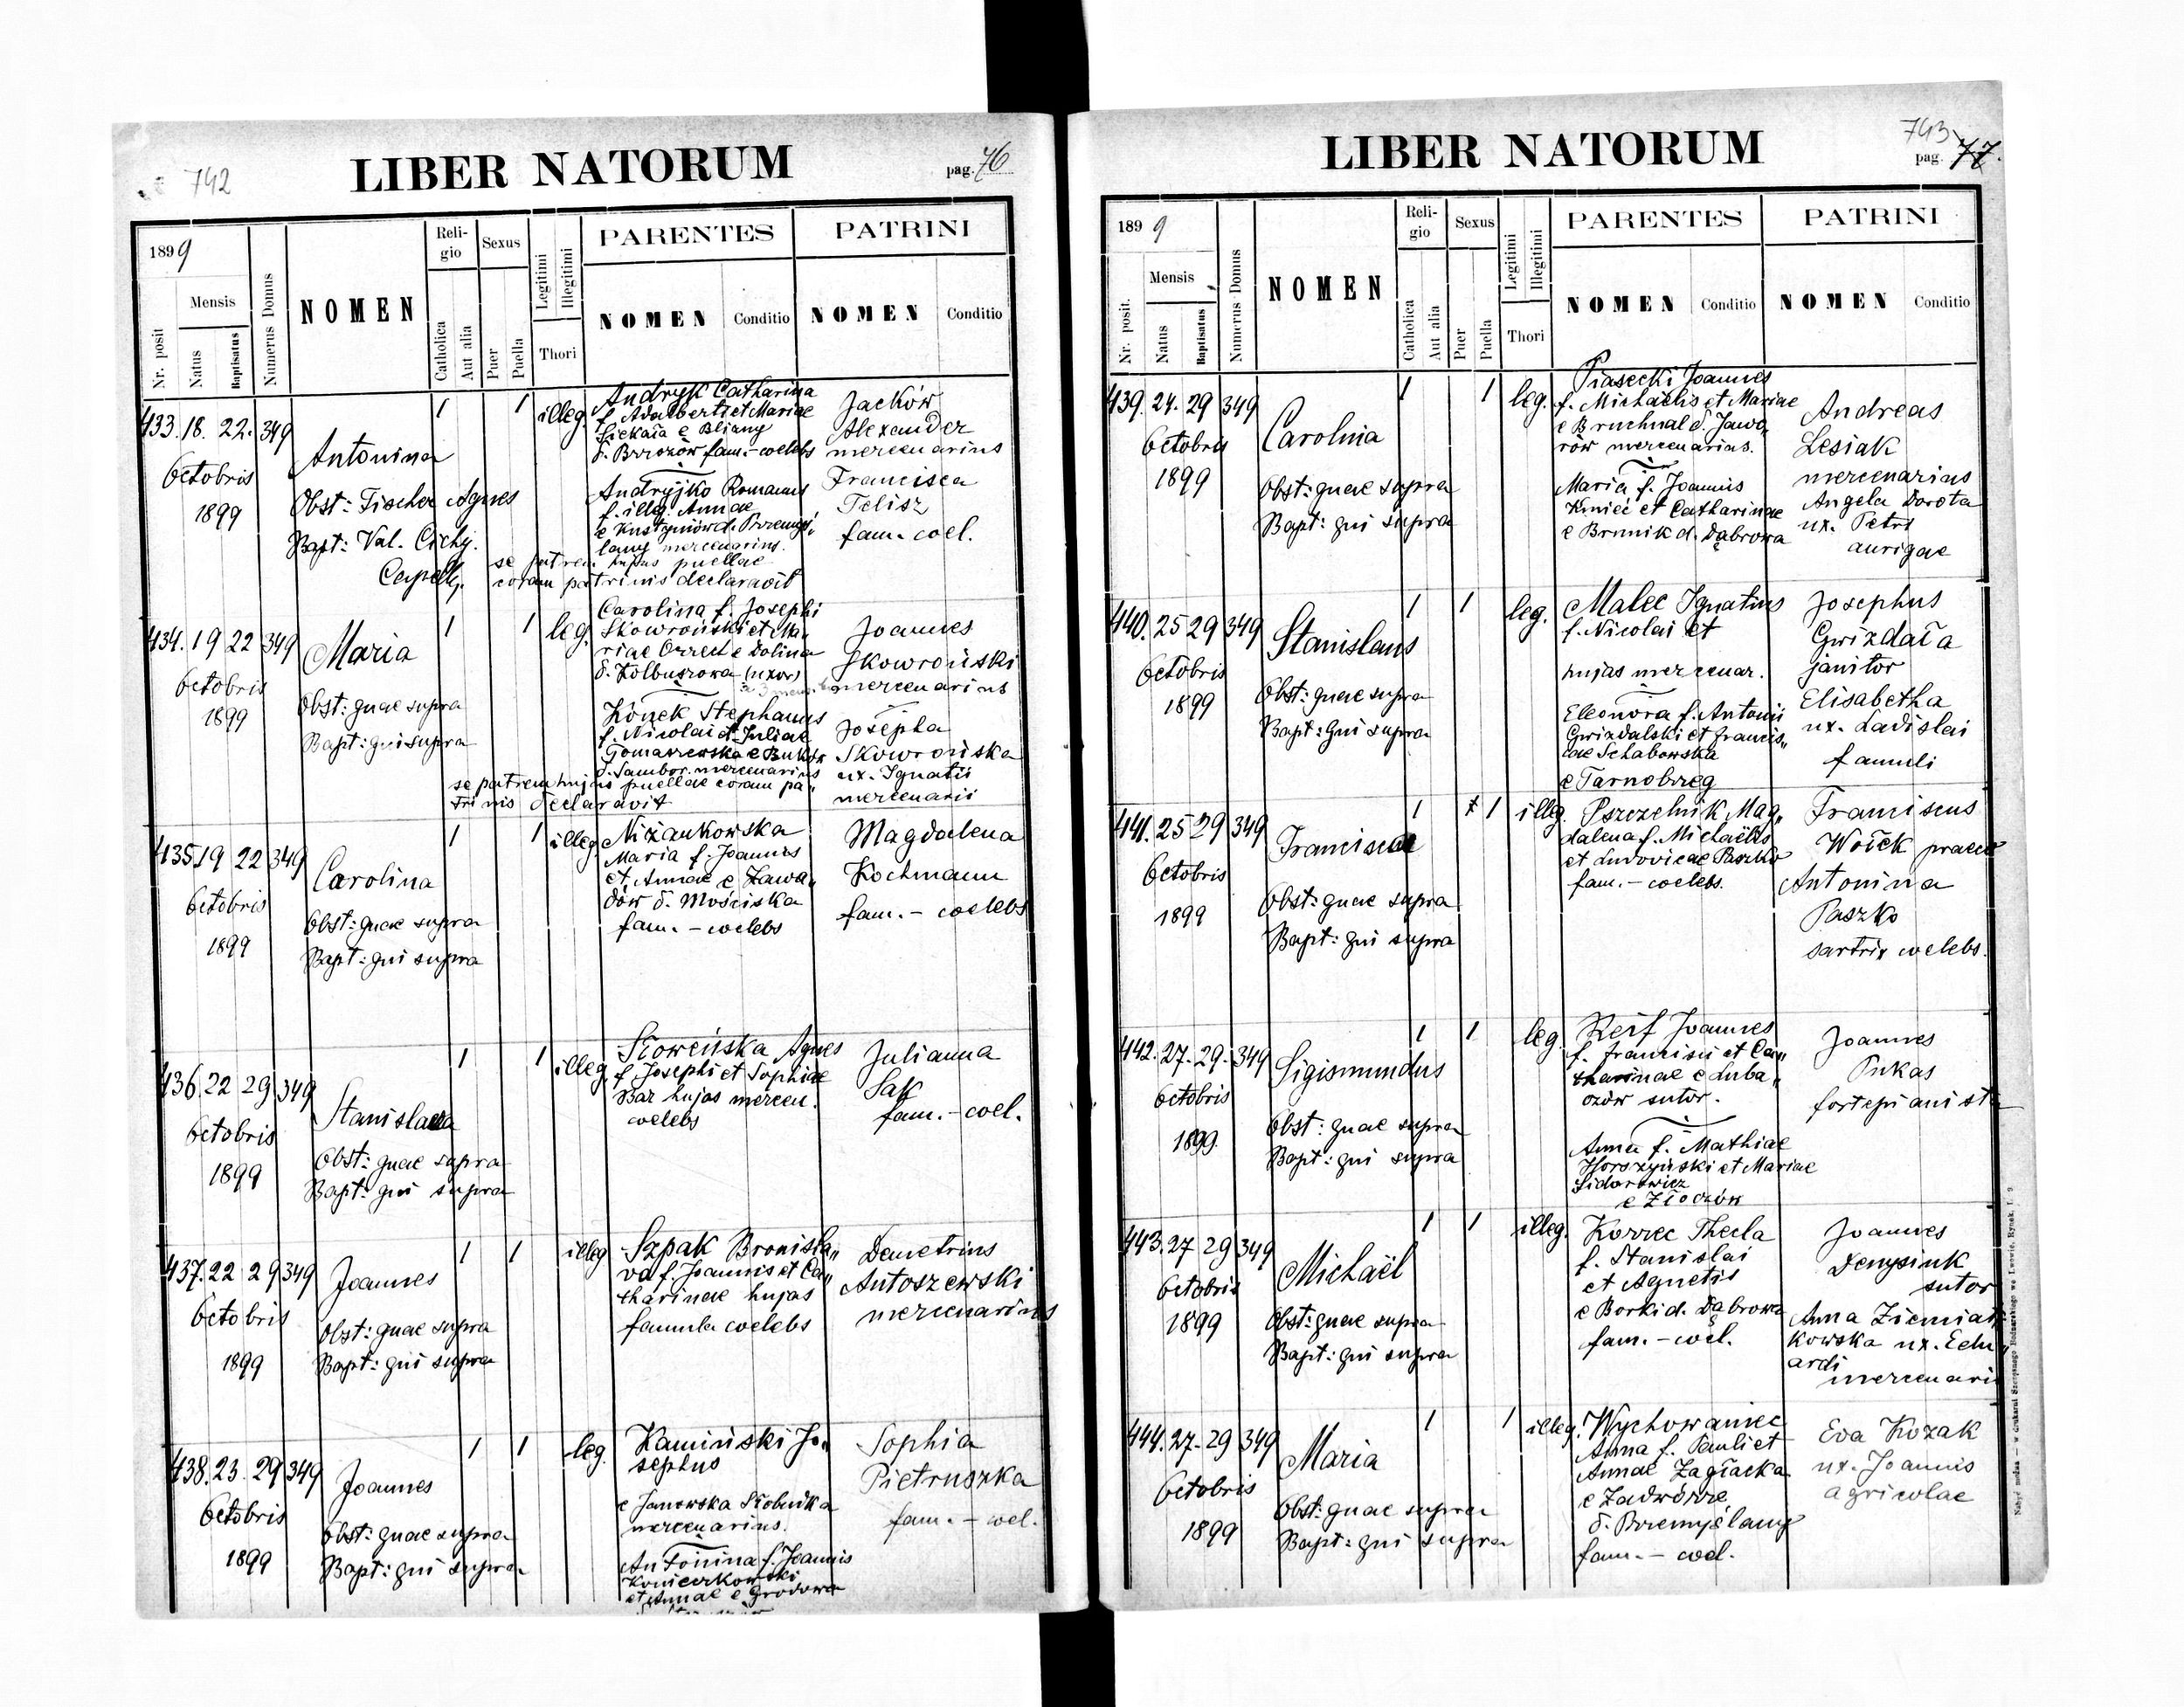 742
LIBER NATORUM
pag. 76
1899
Nr. posit
Mensis
Natus
Baptisatus
Numerus Domus
NOMEN
Reli-
gio
Catholica
Aut alia
Sexus
Puer
Puella
Legitimi
Illegitimi
Thori
PARENTES
NOMEN
Conditio
PATRINI
NOMEN
Conditio
433. 18. 22. 349
Octobris
1899
Antonina
Obst: Fischer Agnes
Bapt: Val. Cichy.
Capell.
1
1
illeg.
Andryk Catharina
f. Adalberti et Mariae
Siekała e Bliany
d. Brzozów fam.- coelebs
Andryjko Romanus
f. illeg. Annae
e Kustyniów d. Przemyś-
lany mercenarius.
se patrem hujus puellae
coram patrinis declaravit
Jacków
Alexander
mercenarius
Francisca
Telisz
fam. coel.
434. 19 22 349
Octobris
1899
Maria
Obst: quae supra
Bapt: qui supra
1
1
leg.
Carolina f. Josephi
Skowroński et Ma-
riae Orzech e Dolina
d. Kolbuszowa (uxor)
Konek Stephanus
f. Nicolai et Juliae
Tomaszewska e Buków
d. Sambor. mercenarius
se patrem hujus puellae coram pa-
trinis declaravit
Joannes
Skowroński
mercenarius
Josepha
Skowrońska
ux. Ignatii
mercenarii
435 19 22 349
Octobris
1899
Carolina
Obst: quae supra
Bapt: qui supra
1
1
illeg.
Niżankowska
Maria f. Joannis
et Annae e Zawa-
dów d. Mościska
fam. - coelebs
Magdalena
Kochmann
fam. - coelebs
436. 22 29 349
Octobris
1899
Stanislava
Obst: quae supra
Bapt: qui supra
1
1
illeg.
Słoweńska Agnes
f. Josephi et Sophiae
Bar hujas mercen.
coelebs
Julianna
Sak
fam. - coel.
437. 22 29 349
Octobris
1899
Joannes
Obst: quae supra
Bapt: qui supra
1
1
illeg
Szpak Bronisła-
va f. Joannis et Ca-
tharinae hujas
famula coelebs
Demetrius
Antoszewski
mercenarius
438. 23. 29 349
Octobris
1899
Joannes
Obst: quae supra
Bapt: qui supra
1
1
leg.
Kamiński Jo-
sephus
e Janowska Słobudka
mercenarius.
Antonina f. Joannis
Konicerkowski
et Annae e Grodowa
Sophia
Pietruszka
fam. - coel.
743
LIBER NATORUM
pag. 77.
1899
Nr. posit.
Mensis
Natus
Baptisatus
Numerus Domus
NOMEN
Reli-
gio
Catholica
Aut alia
Sexus
Puer
Puella
Legitimi
Illegitimi
Thori
PARENTES
NOMEN
Conditio
PATRINI
NOMEN
Conditio
439. 24. 29 349
Octobris
1899
Carolina
Obst: quae supra
Bapt: qui supra
1
1
leg.
Piasecki Joannes
f. Michaelis et Mariae
e Bruchnal d. Jawo-
rów mercenarius.
Maria f. Joannis
Kmieć et Catharinae
e Brnnik d. Dąbrowa
Andreas
Lesiak
mercenarius
Angela Dorota
ux. Petri
aurigae
440. 25 29 349
Octobris
1899
Stanislaus
Obst: quae supra
Bapt: qui supra
1
1
leg.
Malec Ignatius
f. Nicolai et
hujas mercenar.
Eleonora f. Antonii
Gwizdalski et Francis-
cae Schabowska
e Tarnobrzeg
Josephus
Gwizdała
janitor
Elisabetha
ux. Ladislai
famuli
441. 25 29 349
Octobris
1899
Franciscae
Obst: quae supra
Bapt: qui supra
1
1
illeg.
Pszczelnik Mag-
dalena f. Michaëlis
et Ludovicae Paszko
fam. - coelebs.
Franciscus
Wołek praeco
Antonina
Paszko
sartrix coelebs.
442. 27. 29. 349
Octobris
1899.
Sigismundus
Obst: quae supra
Bapt: qui supra
1
1
leg.
Reif Joannes
f. Francisci et Ca-
tharinae e Luba-
czów sutor.
Anna f. Mathiae
Horszyński et Mariae
Sidorowicz
e Złoczów
Joannes
Pukas
fortepianista
443. 27 29 349
Octobris
1899
Michaël
Obst: quae supra
Bapt: qui supra
1
1
illeg.
Korzec Thecla
f. Stanislai
et Agnetis
e Borki d. Dąbrowa
fam. - coel.
Joannes
Denysiuk
sutor
Anna Ziemiań-
kowska ux. Edu-
ardi
mercenarii
444. 27. 29 349
Octobris
1899
Maria
Obst: quae supra
Bapt: qui supra
1
1
illeg.
Wychowaniec
Anna f. Pauli et
Annae Zagłacka
e Zadwórze
d. Przemyślany
fam. - coel.
Eva Kozak
ux. Joannis
agricolae